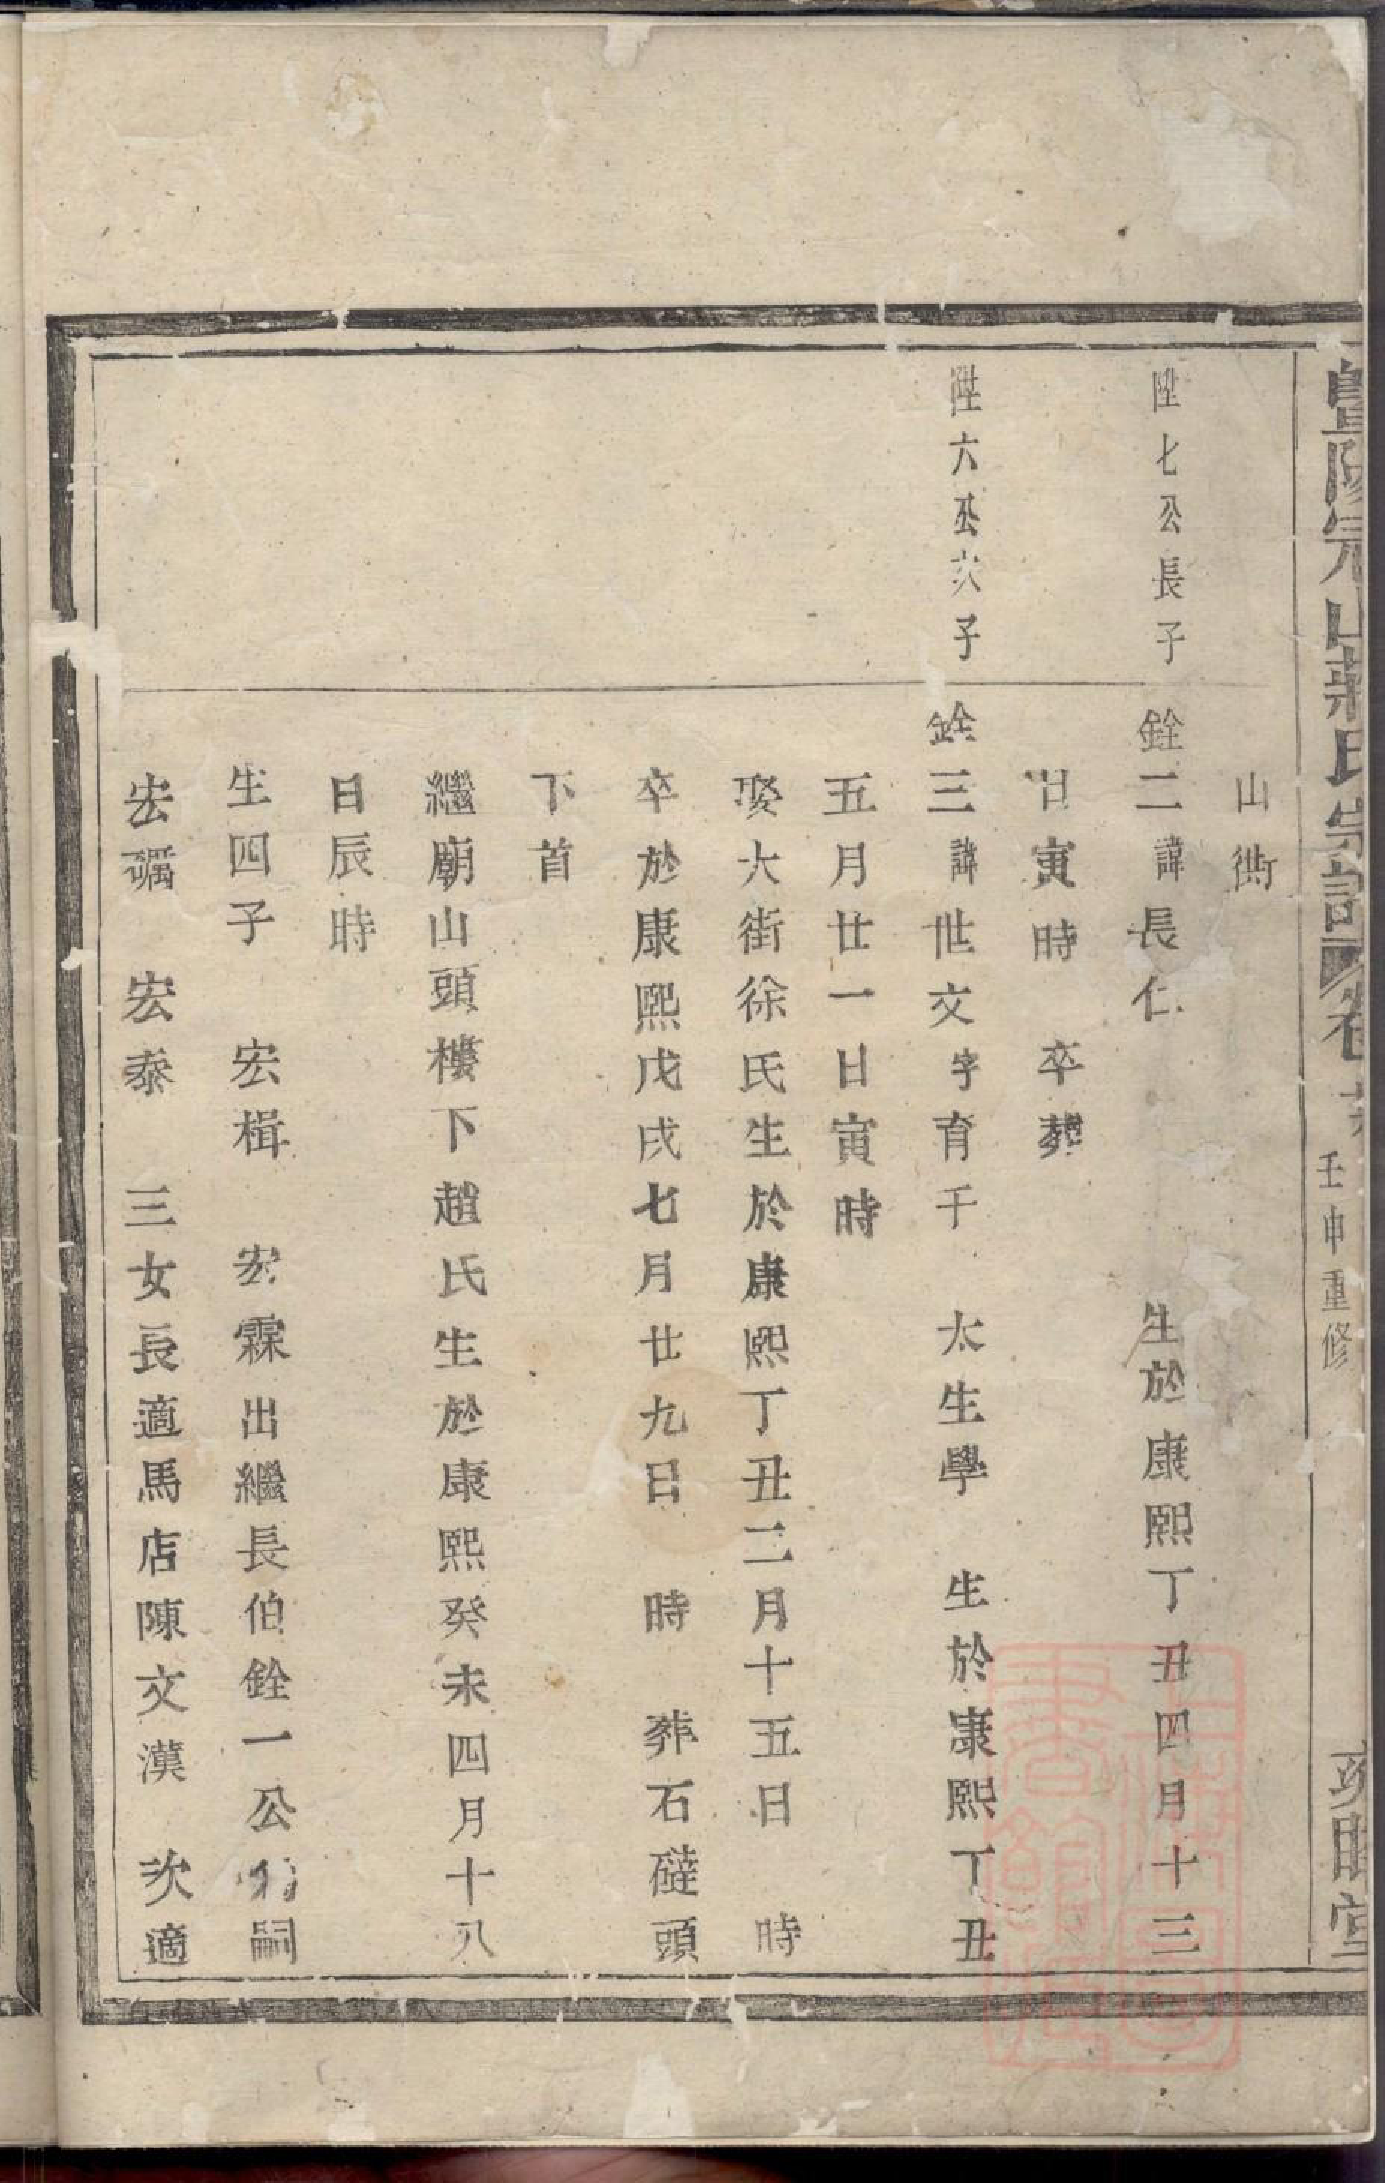 暨陽 山蔣氏宗譜 卷 壬申重修 睦堂
山衖
陞七公長子 銓二諱長仁 生於康熙丁丑四月十三
日寅時 卒葬
陞六公次子 銓三諱世文字育千 太生學 生於康熙丁丑
五月廿一日寅時
娶大街徐氏生於康熙丁丑二月十五日 時
卒於康熙戊戌七月廿九日 時 葬石䃮頭
下首
繼廟山頭樓下趙氏生於康熙癸未四月十八
日辰時
生四子 宏楫 宏霖出繼長伯銓一公 嗣
宏礪 宏泰 三女長適馬店陳文漢 次適